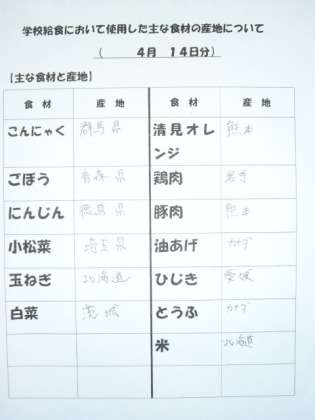 学校給食において使用した主な食材の産地について
( 4月 14日分)
【主な食材と産地】
食材 産地 食材 産地
こんにゃく 群馬県 清見オレンジ 熊本
ごぼう 青森県 鶏肉 岩手
にんじん 徳島県 豚肉 熊本
小松菜 埼玉県 油あげ カナダ
玉ねぎ 北海道 ひじき 愛媛
白菜 茨城 とうふ カナダ
米 北海道